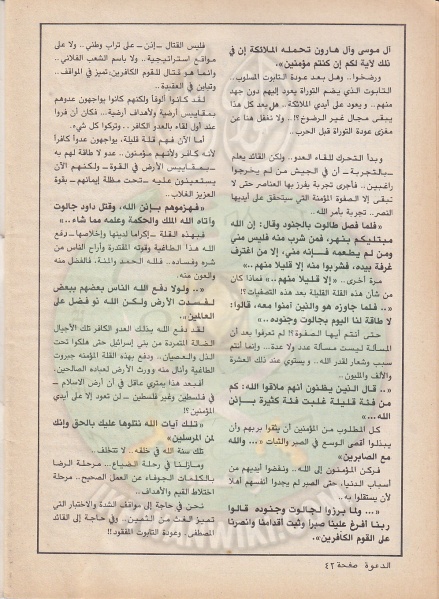 آل موسى وآل هارون تحمله الملائكة إن في
ذلك لآية لكم إن كنتم مؤمنين».
ورضخوا.. وهل بعد عودة التابوت المسلوب..
التابوت الذي يضم التوراة يعود إليهم دون جهد
منهم.. ويعود على أيدي الملائكة.. هل بعد كل هذا
يبقى مجال غير الرضوخ؟!.. ولا نغفل هنا عن
مغزى عودة التوراة قبل الحرب..
وبدأ التحرك للقاء العدو.. ولكن القائد يعلم
ـ بالتجربة ـ أن في الجيش من لم يخرجوا
راغبين.. فأجرى تجربة يفرز بها العناصر حتى لا
تبقى إلا الصفوة المؤمنة التي سيتحقق على أيديها
النصر.. تجربة بأمر الله..
«فلما فصل طالوت بالجنود وقال: إن الله
مبتليكم بنهر، فمن شرب منه فليس مني
ومن لم يطعمه فإنه مني، إلا من اغترف
غرفة بيده، فشربوا منه إلا قليلا منهم..»
مرة أخرى.. «إلا قليلا منهم..» فماذا كان
من شأن هذه القلة القليلة بعد هذه التصفيات؟!
«.. فلما جاوزه هو والذين آمنوا معه، قالوا:
لا طاقة لنا اليوم بجالوت وجنوده..»
حتى أنتم أيها الصفوة؟! لم تعرفوا بعد أن
المسألة ليست مسألة عدد ولا عدة.. وإنما أنتم
سبب وشعار لقدر الله.. ويستوي عند ذلك العشرة
والألف والمليون..
«.. قال الذين يظنون أنهم ملاقوا الله: كم
من فئة قليلة غلبت فئة كثيرة بإذن
الله...»
كل المطلوب من المؤمنين أن يثقوا بربهم وأن
يبذلوا أقصى الوسع في الصبر والثبات «... والله
مع الصابرين»
فركن المؤمنون إلى الله.. ونفضوا أيديهم من
أسباب الدنيا، حتى الصبر لم يجدوا أنفسهم أهلاً
لأن يستقلوا به..
«... ولما برزوا لجالوت وجنوده قالوا
ربنا أفرغ علينا صبرا وثبت أقدامنا وانصرنا
على القوم الكافرين».
فليس القتال ـ إذن ـ على تراب وطني.. ولا على
مواقع استراتيجية.. ولا باسم الشعب الفلاني..
وإنما هو قتال للقوم الكافرين، تميز في المواقف..
وتباين في العقيدة..
لقد كانوا ألوفاً ولكنهم كانوا يواجهون عدوهم
بمقاييس أرضية وأهداف أرضية.. فكان أن فروا
عند أول لقاء بالعدو الكافر.. وتركوا كل شيء.
أما الآن فهم قلة قليلة، يواجهون عدواً كافراً
لأنه كافر ولأنهم مؤمنون.. عدو لا طاقة لهم به
ـ بمقاييس الأرض في القوة ـ ولكنهم الآن
يستعينون عليه ـ تحت مظلة إيمانهم ـ بقوة
العزيز الغلاب..
«فهزموهم بإذن الله، وقتل داود جالوت
وآتاه الله الملك والحكمة وعلمه مما شاء..»
فبهذه القلة ـ إكراما لدينها وإخلاصها ـ رفع
الله هذا الطاغية وقوته المقتدرة وأراح الناس من
شره وفساده.. فلله الحمد والمنة، فالفضل منه
والعون منه.
«.. ولولا دفع الله الناس بعضهم ببعض
لفسدت الأرض ولكن الله ذو فضل على
العالمين».
لقد دفع الله بذلك العدو الكافر تلك الأجيال
الضالة المتمردة من بني إسرائيل حتى هلكوا تحت
الذل والعصيان.. ودفع بهذه القلة المؤمنة جبروت
الطاغية وأنال منه وورث الأرض لعباده الصالحين..
أفبعد هذا يمتري عاقل في أن أرض الإسلام ـ
في فلسطين وغير فلسطين ـ لن تعود إلا على أيدي
المؤمنين؟!
«تلك آيات الله نتلوها عليك بالحق وإنك
لمن المرسلين»
تلك سنة الله في خلقه.. لا تتخلف..
ومازلنا في رحلة الضياع.. مرحلة الرضا
بالكلمات الجوفاء عن العمل الصحيح.. مرحلة
اختلاط القيم والأهداف..
نحن في حاجة إلى مواقف الشدة والاختبار التي
تميز الغث من الثمين.. وفي حاجة إلى القائد
المصطفى، وعودة التابوت المفقود!!
الدعوة صفحة ٤٢